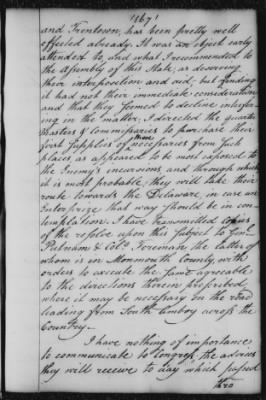 1671
and Trentown, has been pretty well
effected already. It was an object early
attended to, and what I recommended to
the Assembly of this State, as deserving
their interposition and aid; but finding
it had not their immediate consideration
and that they seemed to decline interfer-
ing in the matter, I directed the Quarter
Masters & Commissaries to purchase their
first supplies of necessaries from such
places, as appeared to be most exposed to
the Enemy's incursions and through which
it is most probable, they will take their
route towards the Delaware in case an
Enterprize that way should be in con-
templation. I have transmitted Copies
of the resolve upon this Subject to Genl
Putnam & Colo. Foreman, the latter of
whom is in Monmouth County, with
orders to execute the same agreeable
to the directions therein prescribed,
where it may be necessary on the road
leading from South Amboy across the
Country.
I have nothing of importance
to communicate to Congress, the advices
they will receive to day which passed
thro